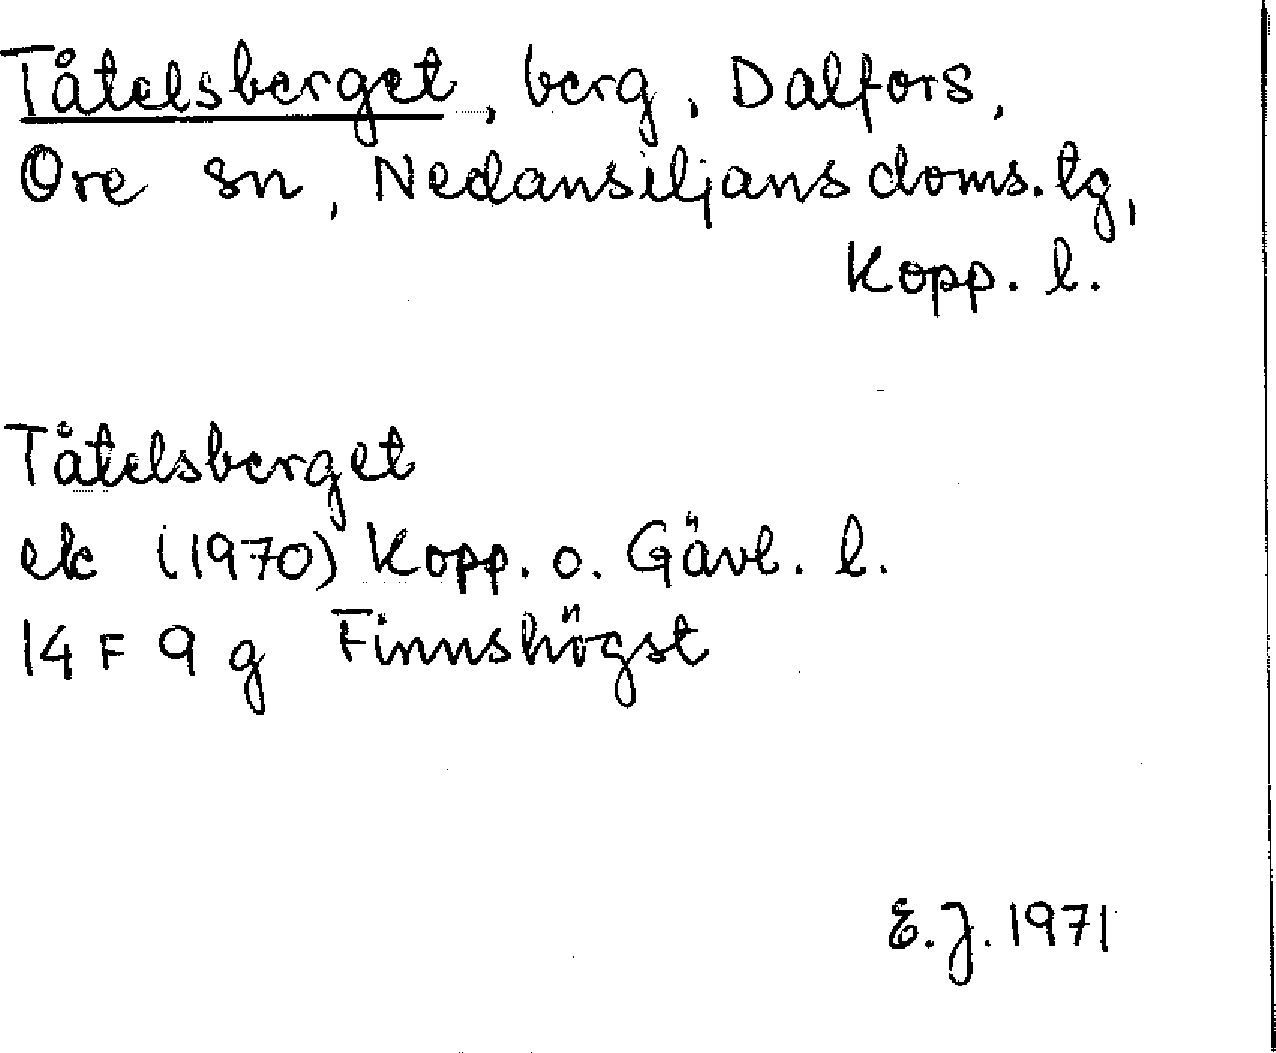 Tåtelsberget, berg, Dalfors,
Ore sn, Nedansiljans doms. tg,
Kopp. l.
Tåtelsberget
ek (1970) Kopp. o. Gävl. l.
14 F 9 g Finnshögst
E.J. 1971